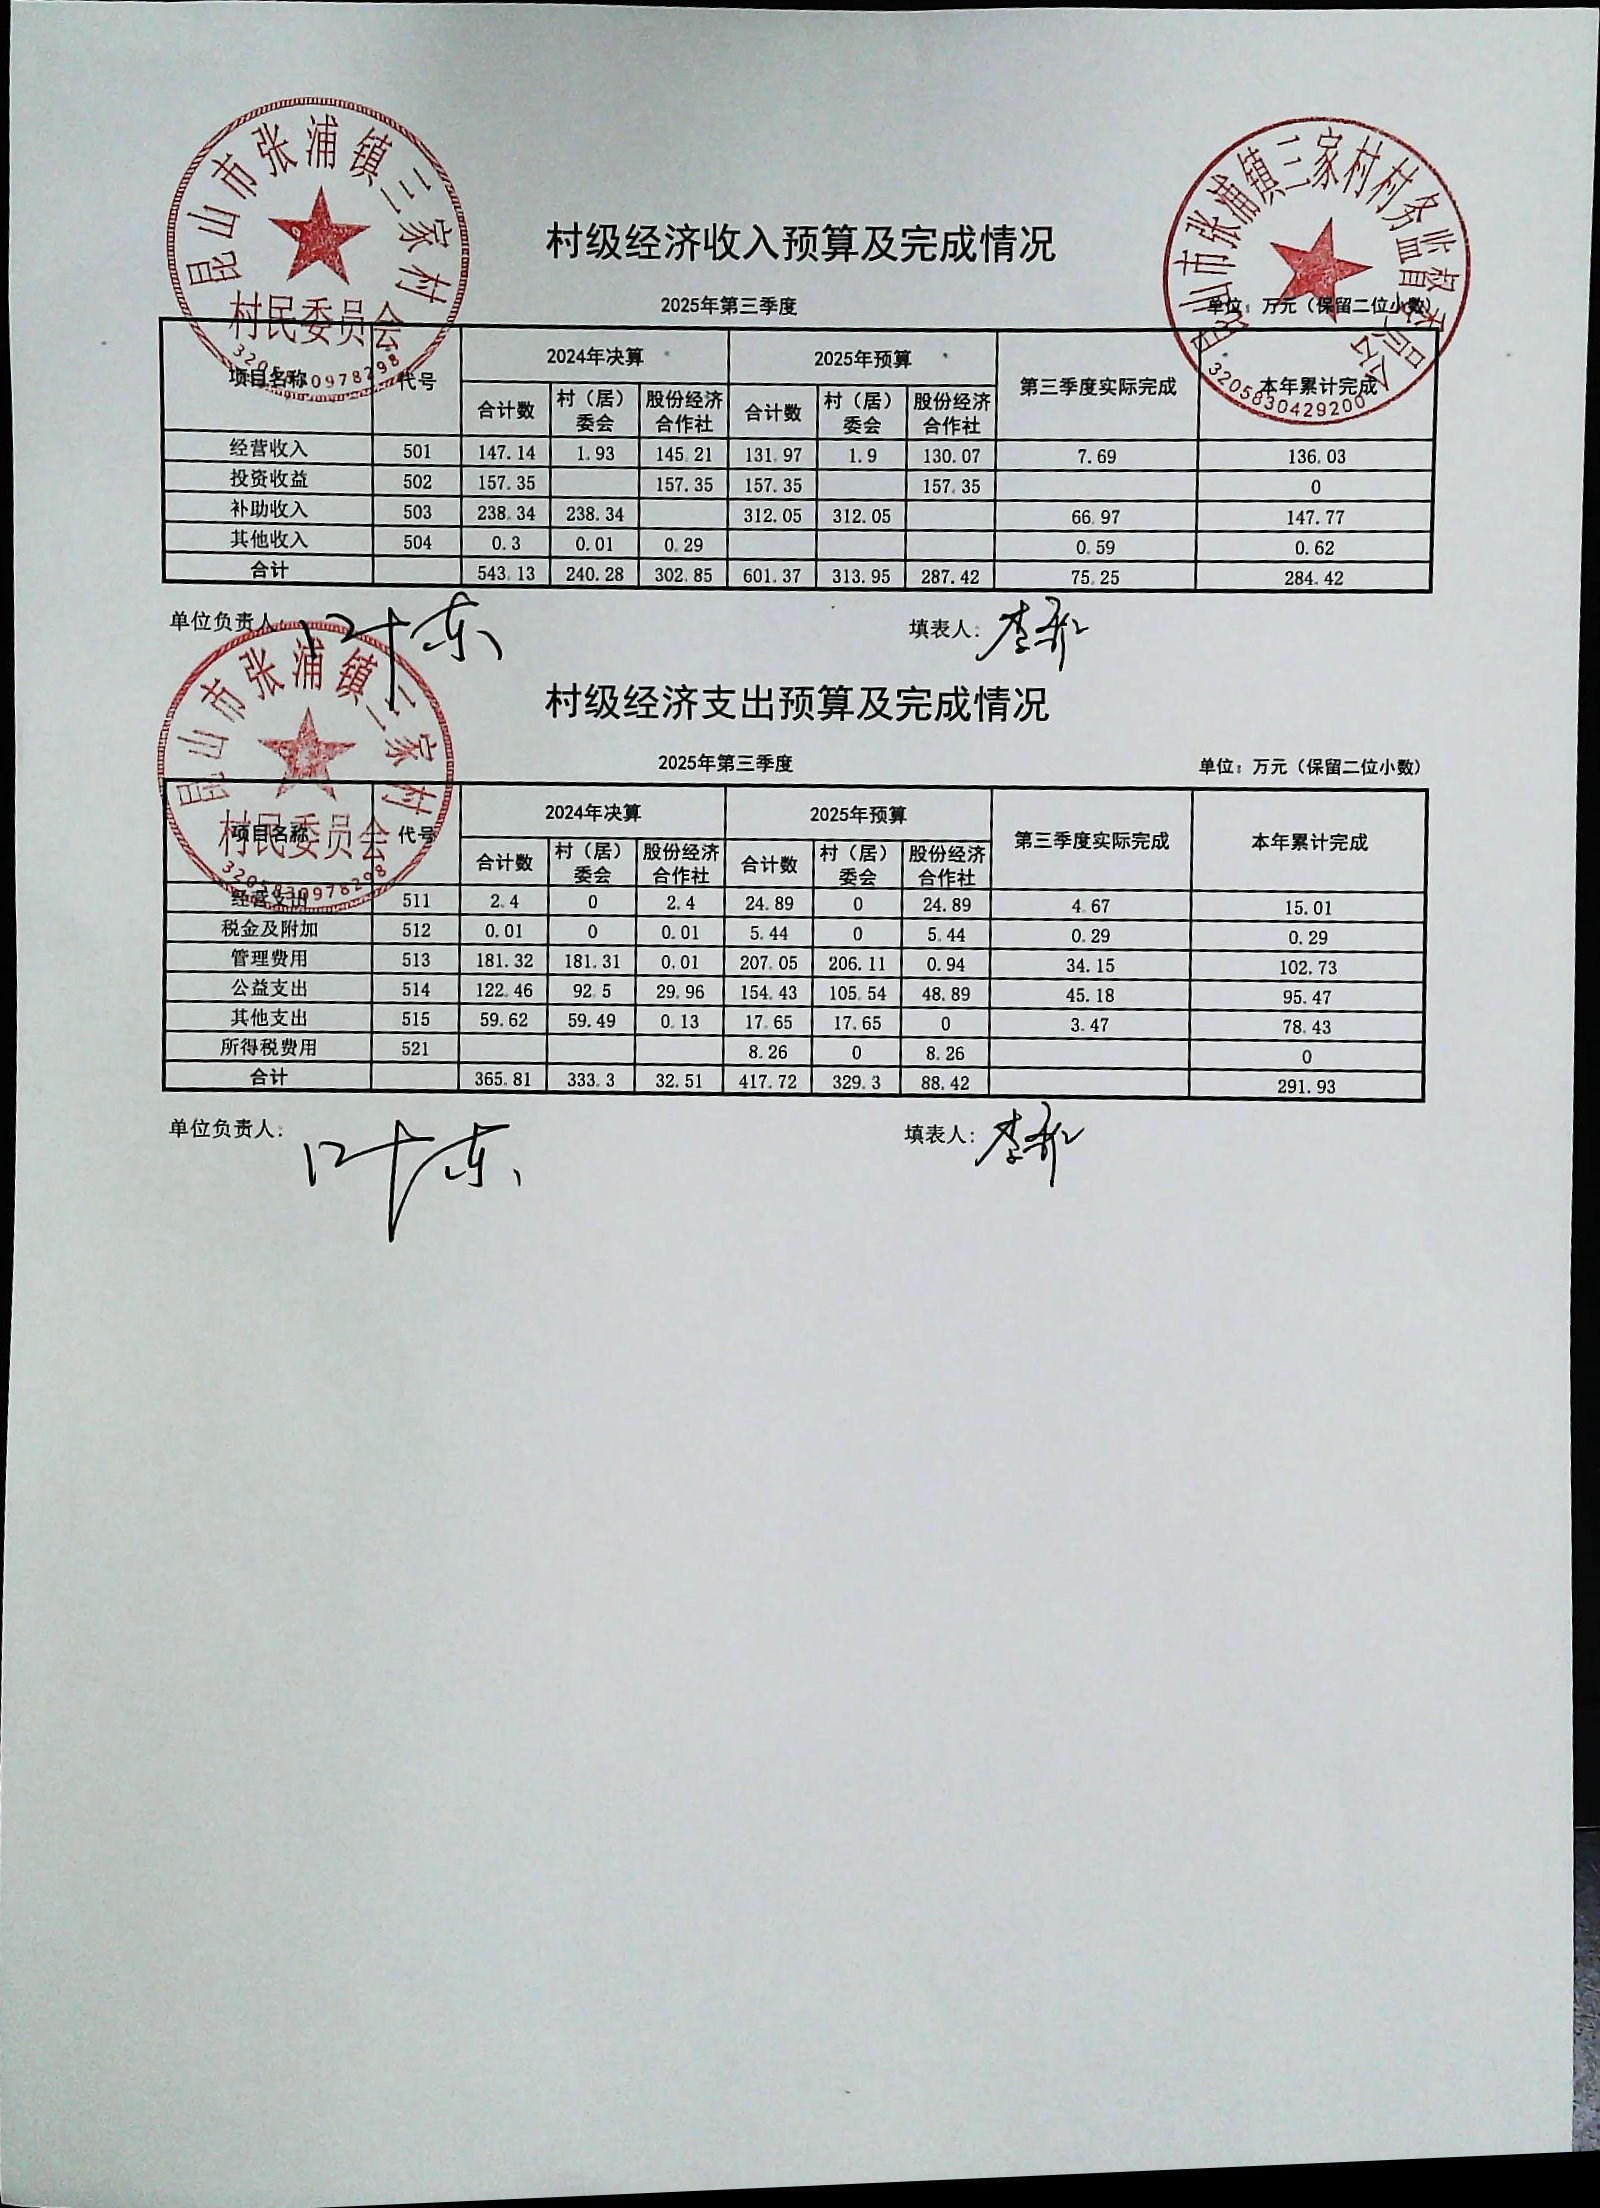 昆山市张浦镇三家村
村民委员会
3205830978298
昆山市张浦镇三家村村务监督委员会
3205830429200
村级经济收入预算及完成情况
2025年第三季度 单位：万元（保留二位小数）
项目名称 代号 2024年决算 2025年预算 第三季度实际完成 本年累计完成
合计数 村（居）委会 股份经济合作社 合计数 村（居）委会 股份经济合作社
经营收入 501 147.14 1.93 145.21 131.97 1.9 130.07 7.69 136.03
投资收益 502 157.35 157.35 157.35 157.35 0
补助收入 503 238.34 238.34 312.05 312.05 66.97 147.77
其他收入 504 0.3 0.01 0.29 0.59 0.62
合计 543.13 240.28 302.85 601.37 313.95 287.42 75.25 284.42
单位负责人： 填表人：
昆山市张浦镇三家村
村民委员会
3205830978298
村级经济支出预算及完成情况
2025年第三季度 单位：万元（保留二位小数）
项目名称 代号 2024年决算 2025年预算 第三季度实际完成 本年累计完成
合计数 村（居）委会 股份经济合作社 合计数 村（居）委会 股份经济合作社
经营支出 511 2.4 0 2.4 24.89 0 24.89 4.67 15.01
税金及附加 512 0.01 0 0.01 5.44 0 5.44 0.29 0.29
管理费用 513 181.32 181.31 0.01 207.05 206.11 0.94 34.15 102.73
公益支出 514 122.46 92.5 29.96 154.43 105.54 48.89 45.18 95.47
其他支出 515 59.62 59.49 0.13 17.65 17.65 0 3.47 78.43
所得税费用 521 8.26 0 8.26 0
合计 365.81 333.3 32.51 417.72 329.3 88.42 291.93
单位负责人： 填表人：